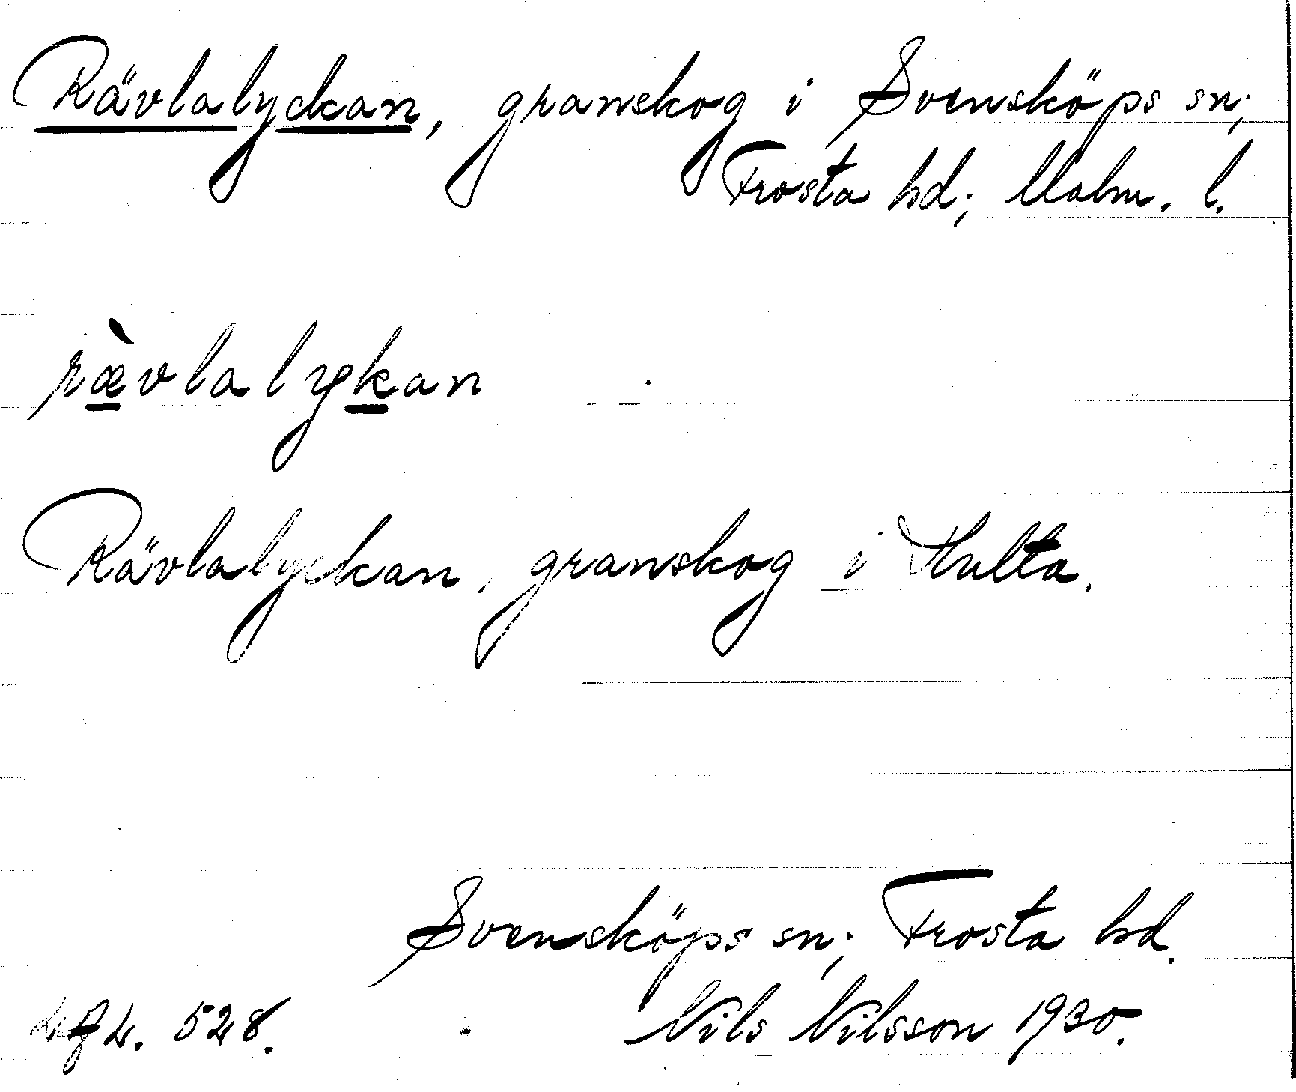 Rävlalyckan, granskog i Svensköps sn;
Frosta hd; Malm. l.
rævlalykan
Rävlalyckan, granskog i Hulta.
Svensköps sn; Frosta hd.
528. Nils Nilsson 1930.